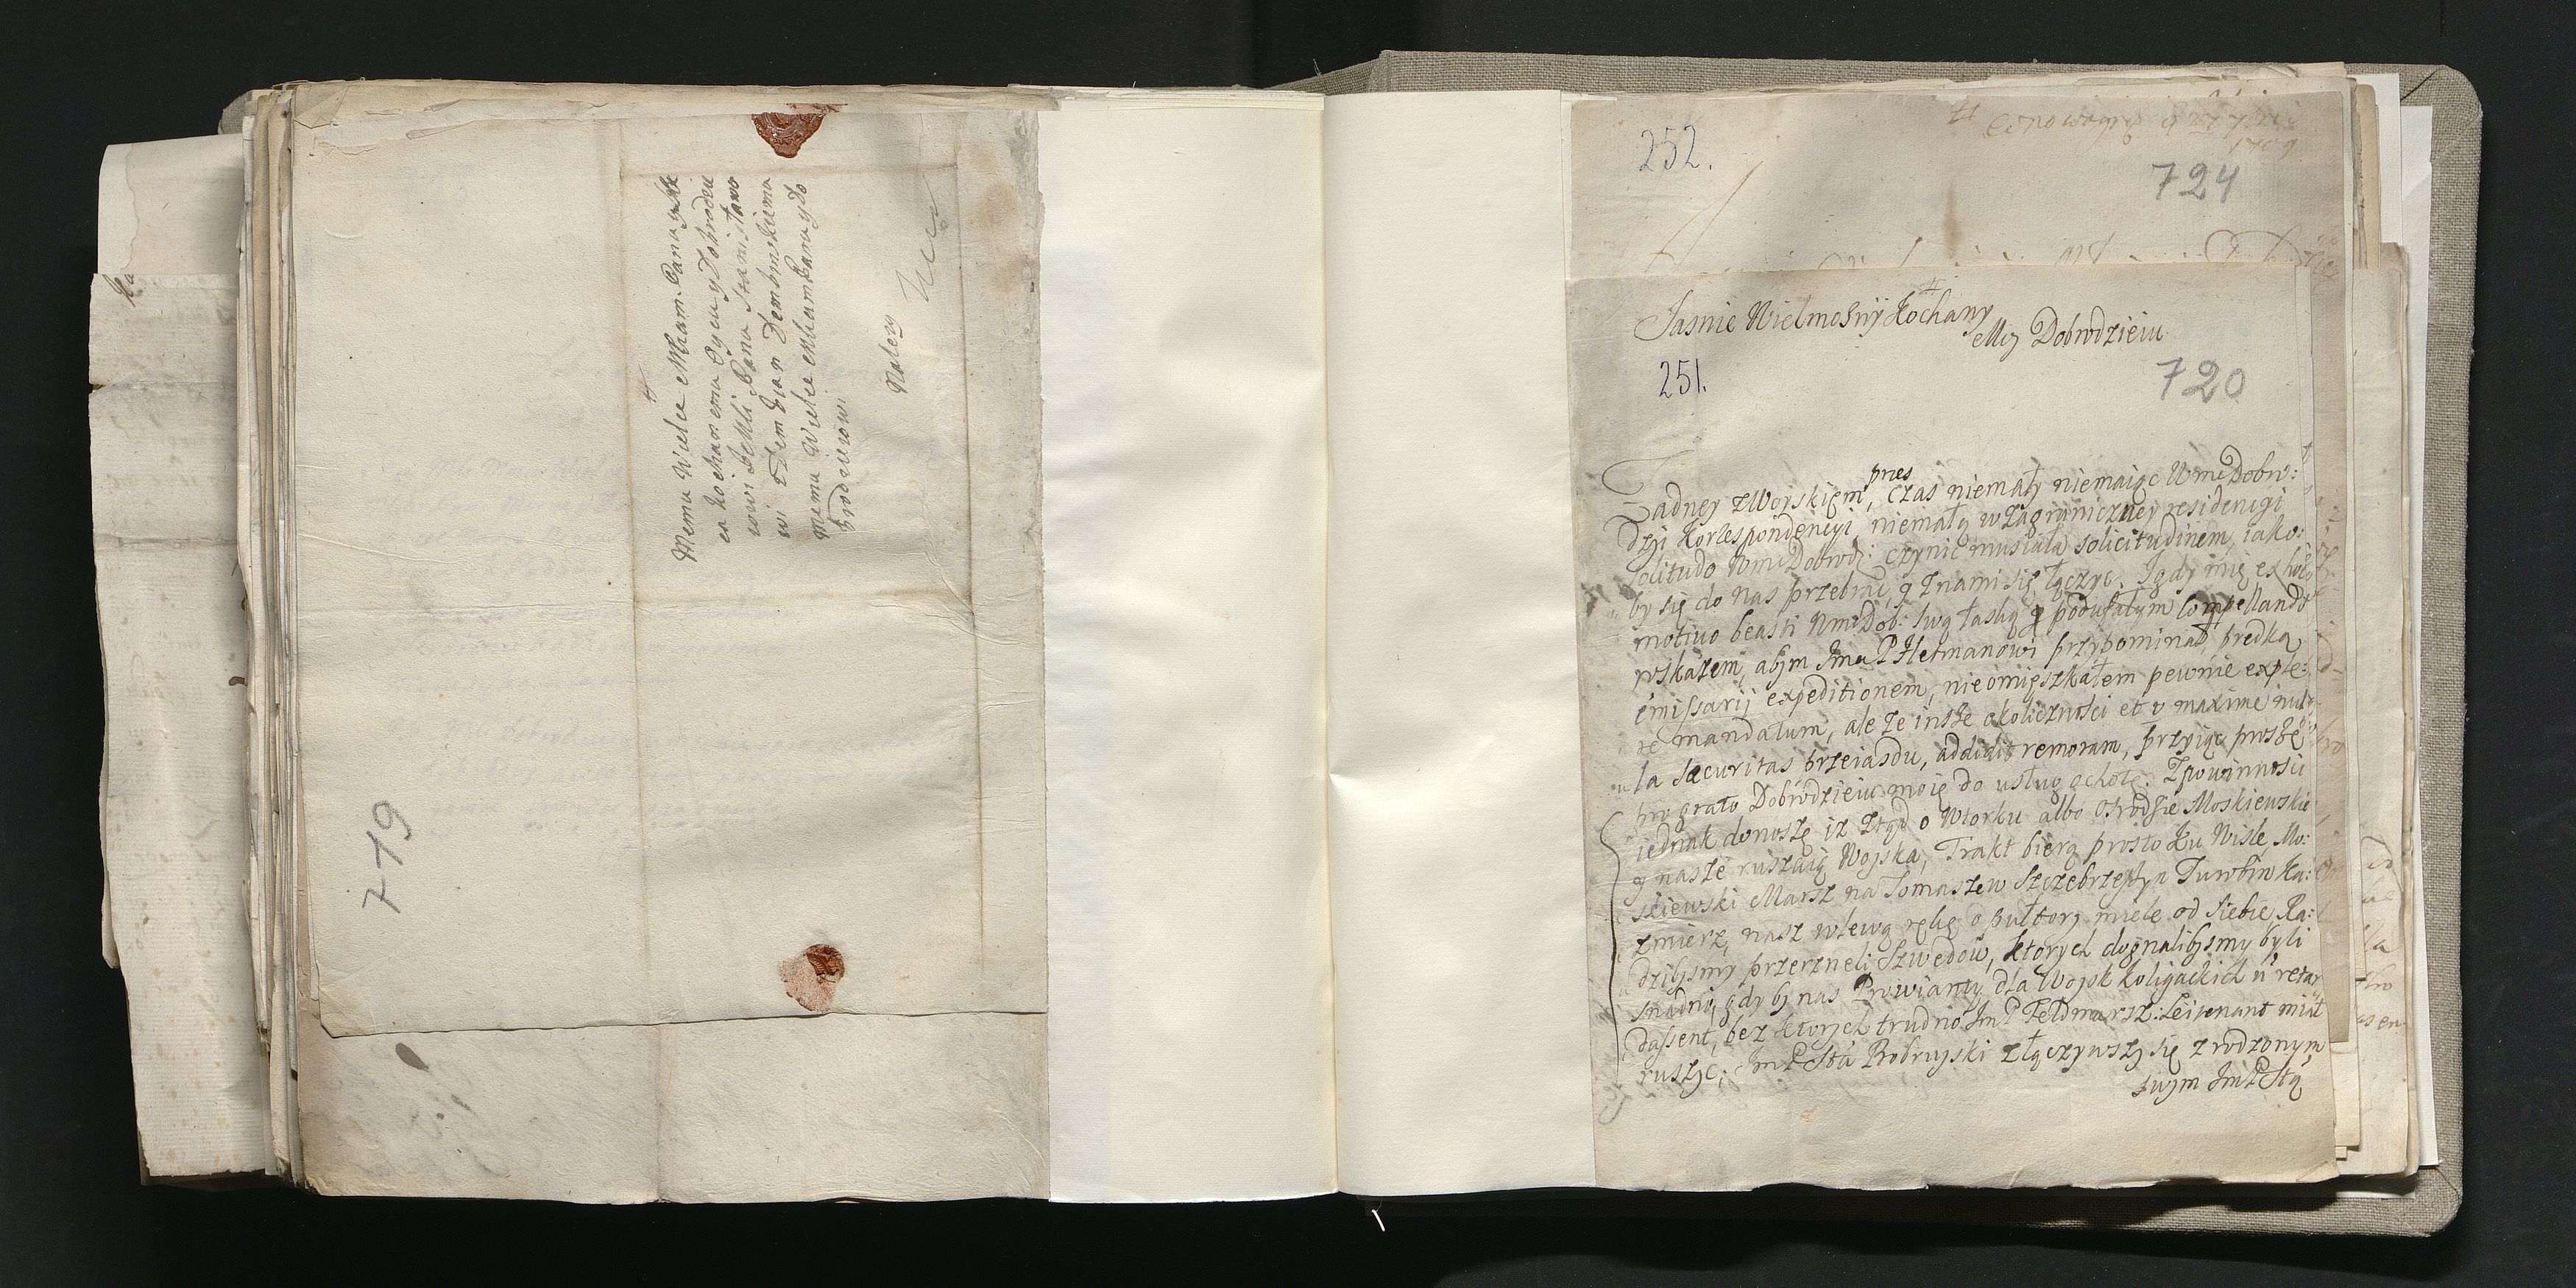 Memu Wielce Mham Panu y
ex kochanemu Oycu y Dobrodzie
iowi JeMci Panu Stanisławo
wi z Dembian Dembinskiemu
Memu Wielce Mham Panu y Do
brodzieiowi
Nalezy
719
252.
1709
724
Jasnie Wielmożnÿ Kochany
Mcy Dobrodzieiu
251.
720
pres
Zadney z Woyskiem, czas niemały niemaiąc WmcDobr:
dzji Korrespondencyi, niemałą w zagraniczney residencyi
solitudo WmcDobrodz: czynić musiała solicitudinem, iako:
by się do nas przebrać, y z nami się łączyc. Igdy mię ex hoc
motivo beasti WmcDob: swą łaską y poufałym compellando
wskazem, abym Jmci P Hetmanowi przypominał prędką
emissarij expeditionem, nieomięszkałem pewnie exple:
re mandatum, ale ze insze okoliczności et v maxime nul:
la securitas przeiazdu, addidit remoram, przyiąc proszę
pro grato Dobrodzieiu moię do usług ochotę. Zpowinności
iednak donoszę iz ztąd o Wtorku albo Srzodzie Moskiewskie
y nasze ruszaią Woyska, Trakt biorą prosto ku Wisle, Mo:
skiewski Marsz na Tomaszew Szczebrzeszyn Turobin Ka:
zmierz, nasz w lewą rękę o pułtory mile od siebie, Ra:
dzibysmy przerzneli Szwedow, ktorych dognalibysmy byli
snadno, gdyby nas Prowianty dla Woysk Koligackich n retar
dassent, bez ktorych trudno Jm P Feldmarsz: Leitenant miał
ruszyc; Jm P Sta Bobruyski złączywszy się z rodzonym
swym Jm P Stą